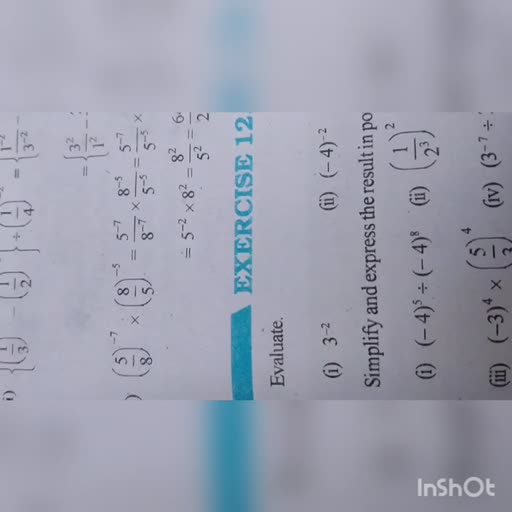 i) {(1/3) − (1/2)} ÷ (1/4) = {1⁻²/3⁻² −
= {3²/1² −
) (5/8)⁻⁷ × (8/5)⁻⁵ = 5⁻⁷/8⁻⁷ × 8⁻⁵/5⁻⁵ = 5⁻⁷/5⁻⁵ ×
= 5⁻² × 8² = 8²/5² =
EXERCISE 12
Evaluate.
(i) 3⁻² (ii) (−4)⁻²
Simplify and express the result in po
(i) (−4)⁵ ÷ (−4)⁸ (ii) (1/2³)²
(iii) (−3)⁴ × (5/3)⁴ (iv) (3⁻⁷ ÷
InShOt